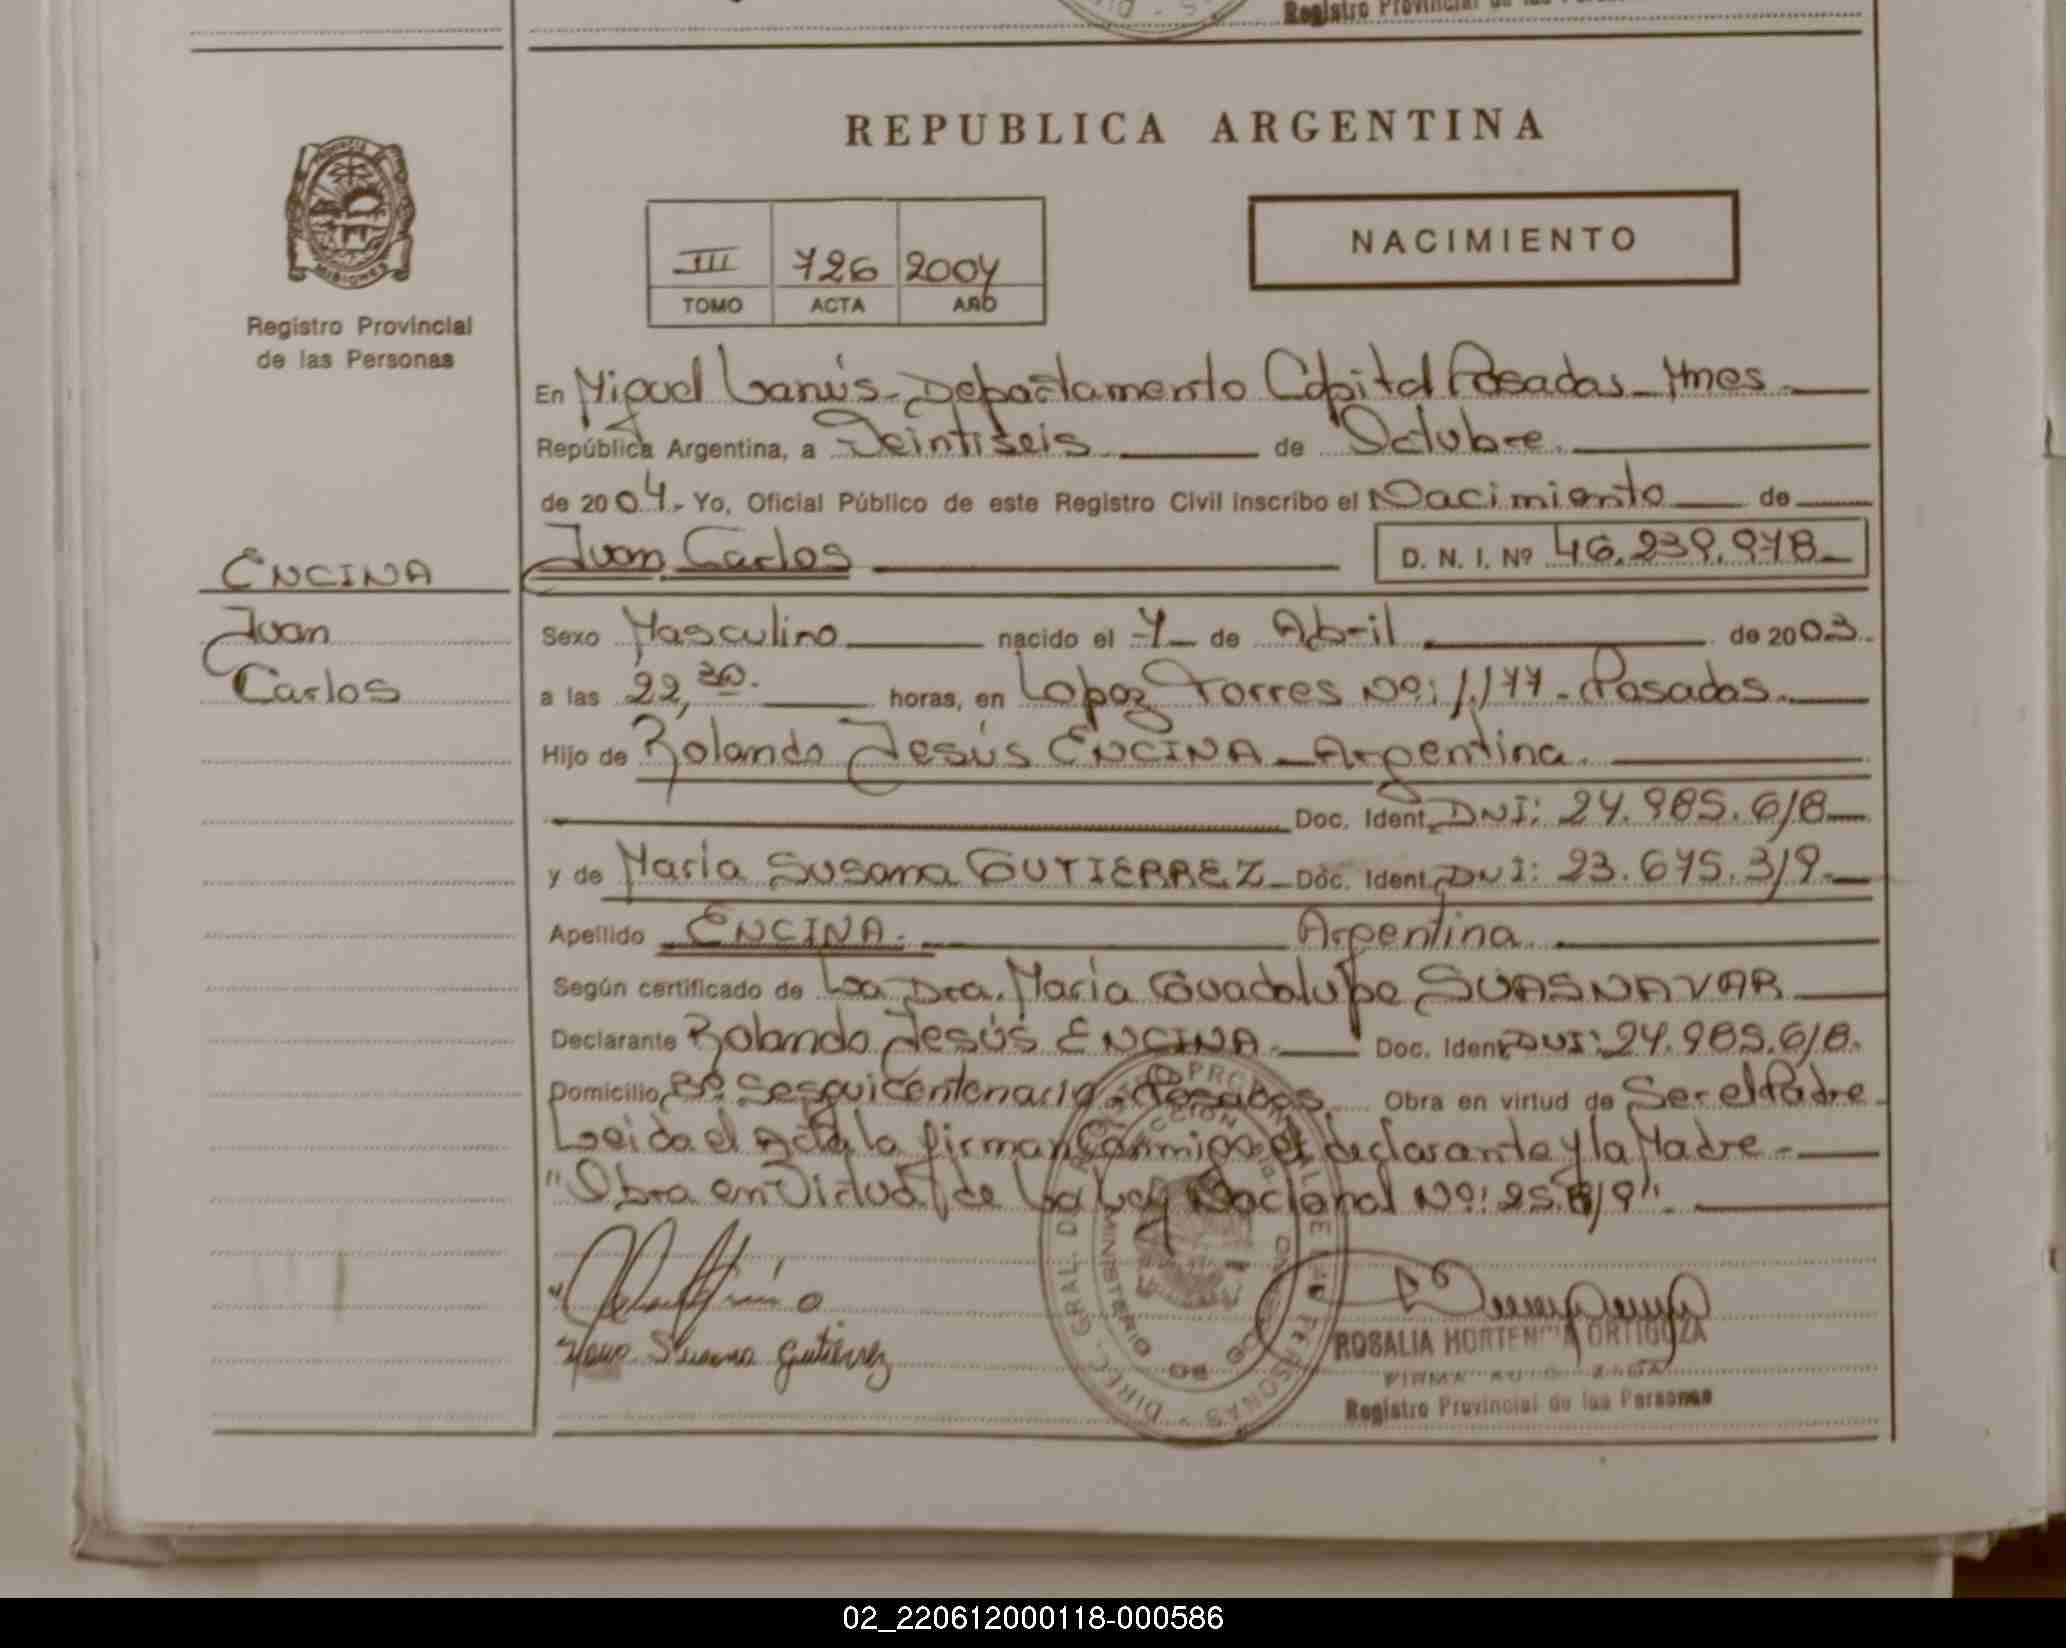 Registro Provincial de las Personas
REPUBLICA ARGENTINA
PROVINCIA
MISIONES
Registro Provincial
de las Personas
III 726 2004
TOMO ACTA AÑO
NACIMIENTO
En Miguel Lanús - Departamento Capital Posadas - Mnes
República Argentina, a Veintiseis de Octubre.
de 2004.- Yo, Oficial Público de este Registro Civil inscribo el Nacimiento de
ENCINA
Juan
Carlos
Juan Carlos D. N. I. Nº 46.239.978
Sexo Masculino nacido el 7 de Abril de 2003.
a las 22,30. horas, en Lopez Torres Nº: 1.177 - Posadas.
Hijo de Rolando Jesús ENCINA - Argentina.
Doc. Ident. DNI: 24.985.618
y de María Susana GUTIERREZ - Doc. Ident. DNI: 23.675.319.
Apellido ENCINA. Argentina.
Según certificado de La Dra. María Guadalupe SUASNAVAR
Declarante Rolando Jesús ENCINA. Doc. Ident. DNI: 24.985.618.
Domicilio Bº Sesquicentenario - Posadas. Obra en virtud de Ser el Padre
Leida el acta la firman conmigo el declarante y la Madre -
"Obra en Virtud de La Ley Nacional Nº: 25.819".
Maria Susana Gutierrez
ROSALIA HORTENCIA ORTIGOZA
Registro Provincial de las Personas
02_220612000118-000586